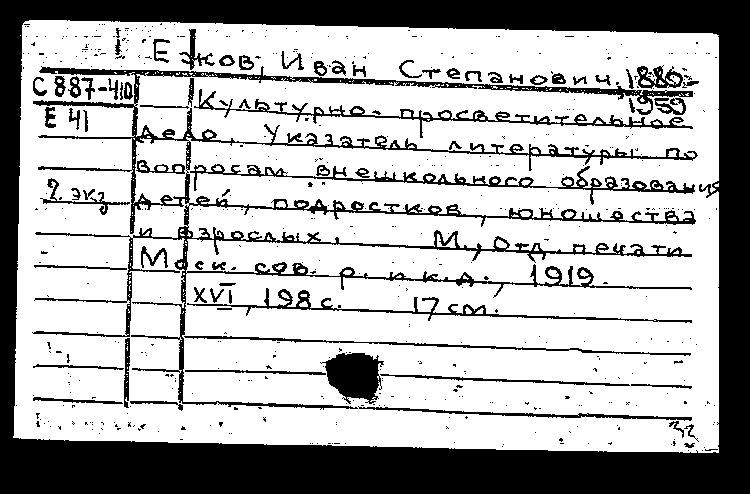 Ежов, Иван Степанович. 1880-
1959
С 887-410
Е 41
2 экз
Культурно-просветительное
дело. Указатель литературы по
вопросам внешкольного образования
детей, подростков, юношества
и взрослых. М., Отд. печати
Моск. сов. р. и к.д., 1919.
XVI, 198 с. 17 см.
33